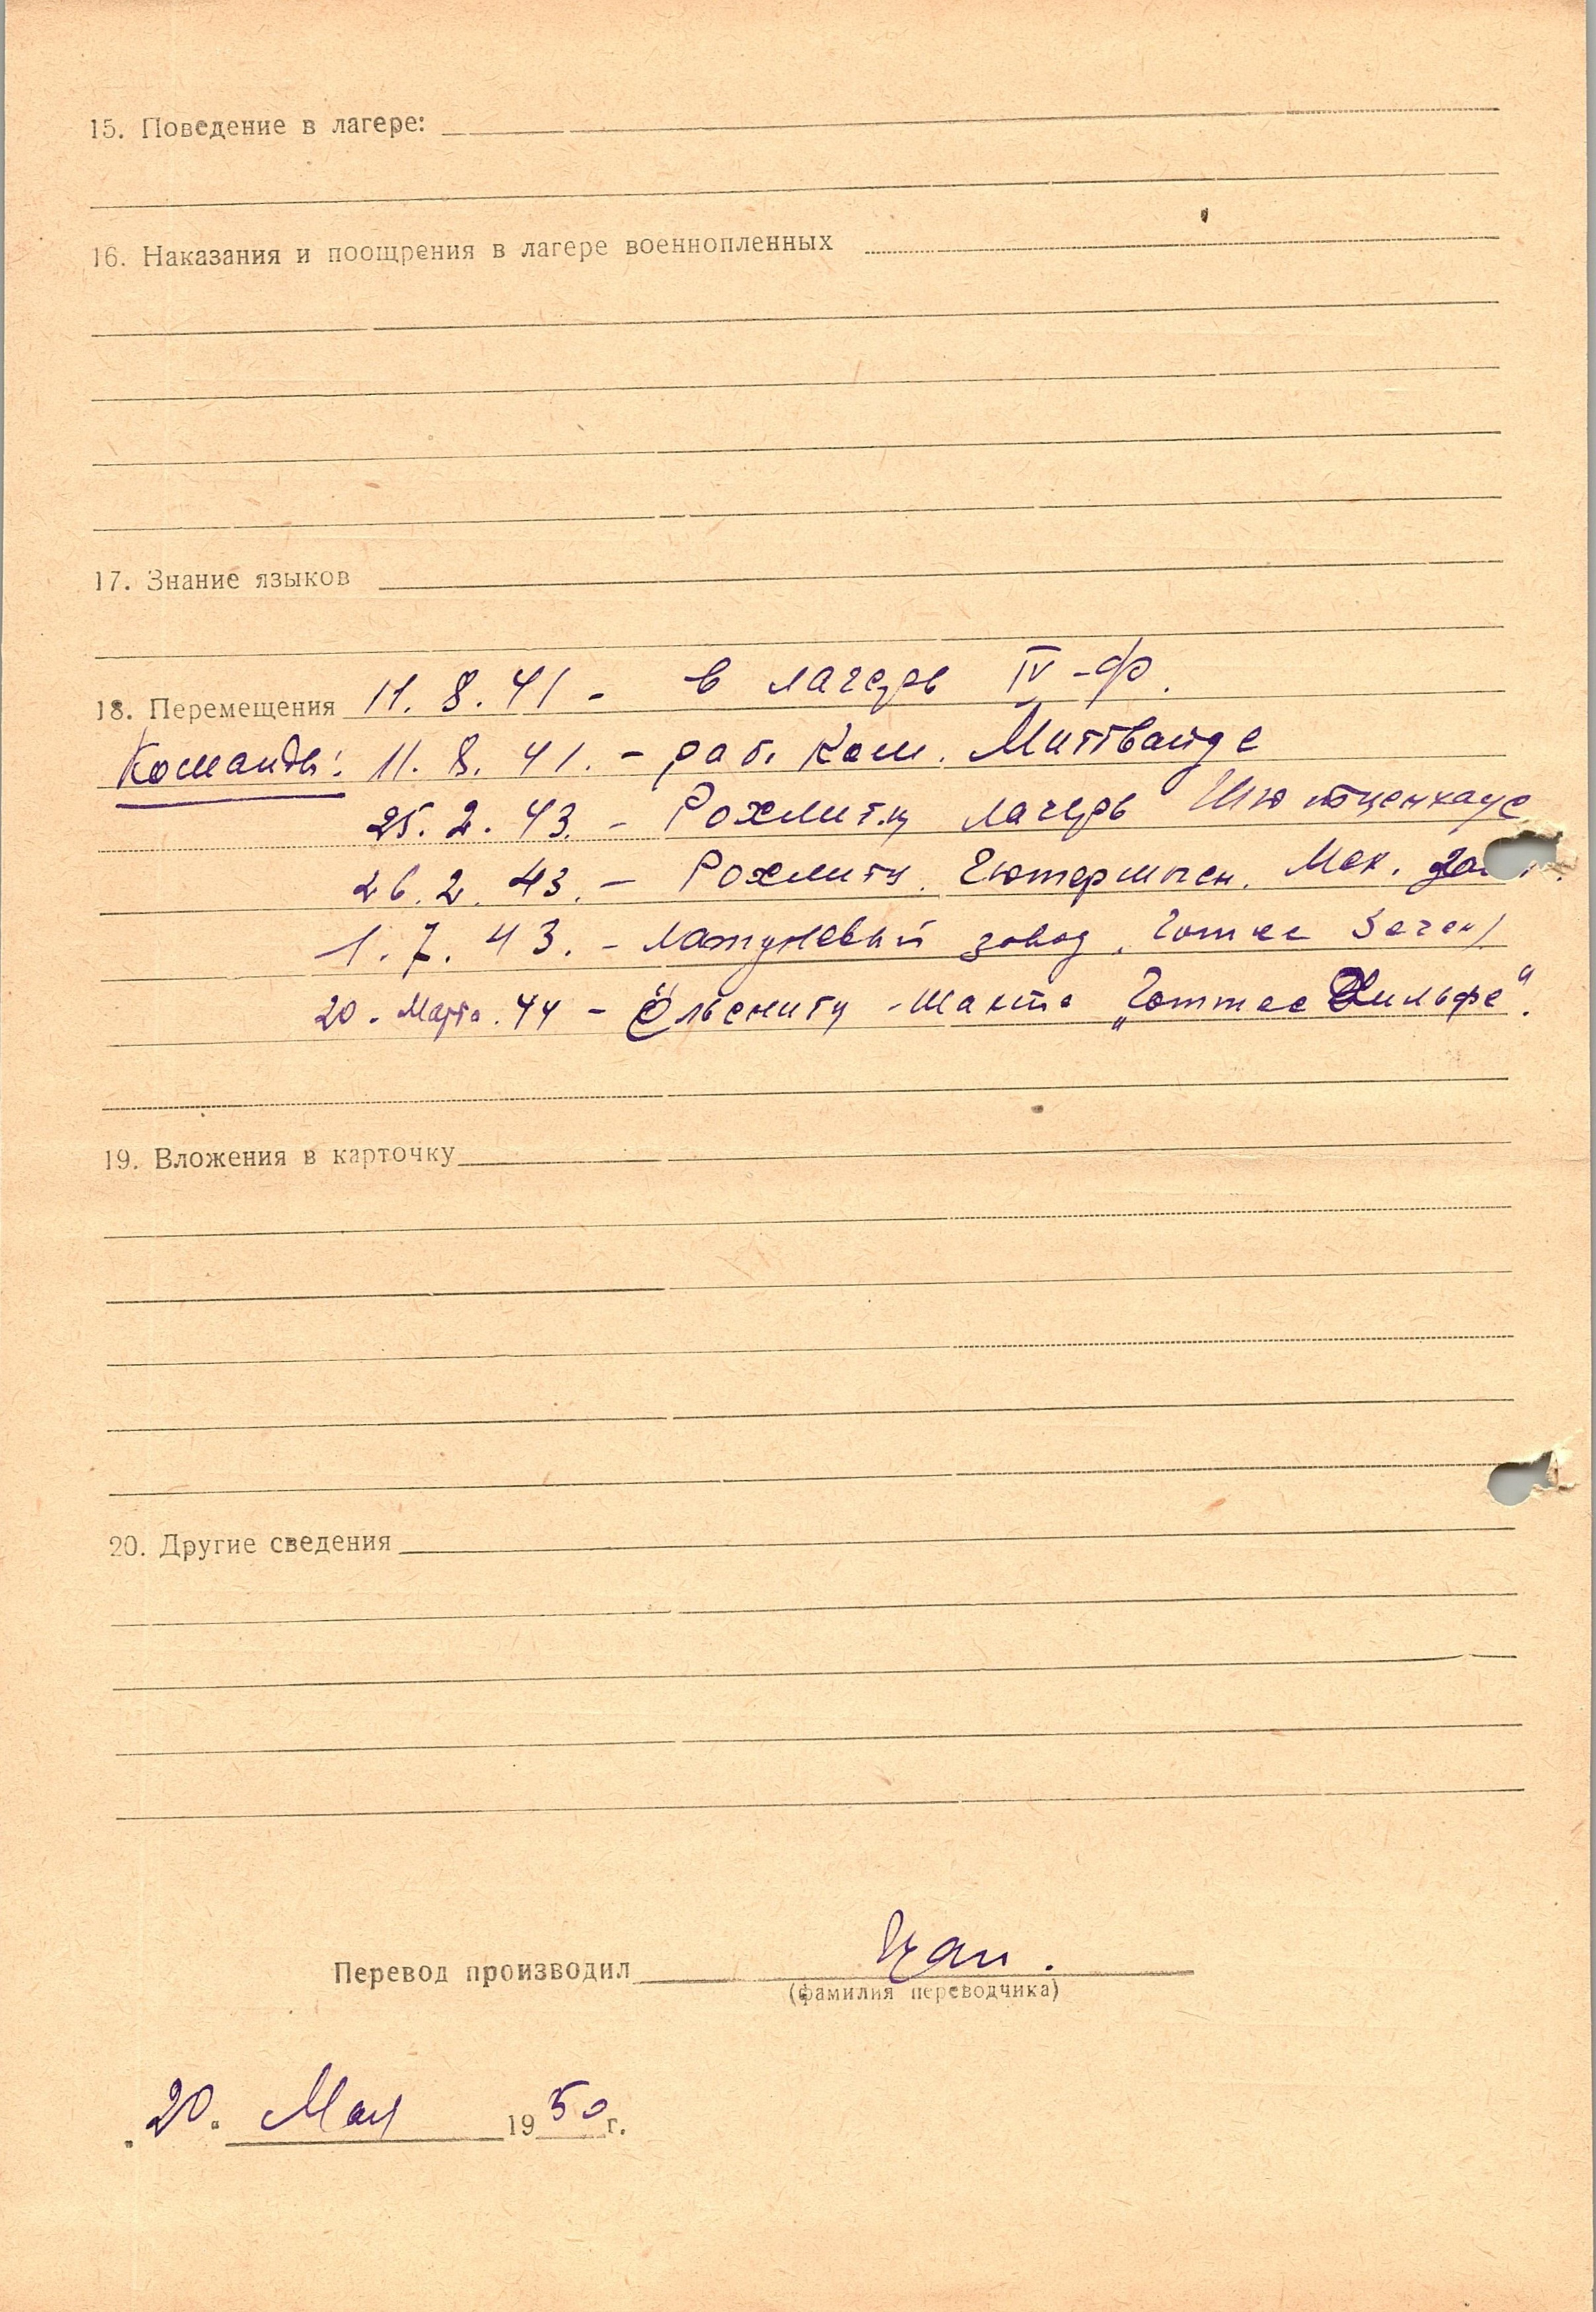 15. Поведение в лагере:
16. Наказания и поощрения в лагере военнопленных
17. Знание языков
18. Перемещения 11. 8. 41 - в лагерь IV-Ф.
Команды: 11. 8. 41. - раб. Ком. Миттвайде
25. 2. 43. - Рохлитц лагерь Шютценхаус
26. 2. 43. - Рохлитц. Мех.
1. 7. 43. - Латуневый завод, Готтес Зеген
20. Марта. 44 - Ёльснитц - Шахта „Готтес Хильфе".
19. Вложения в карточку
20. Другие сведения
Перевод производил
(фамилия переводчика)
20. Мая 1950 г.